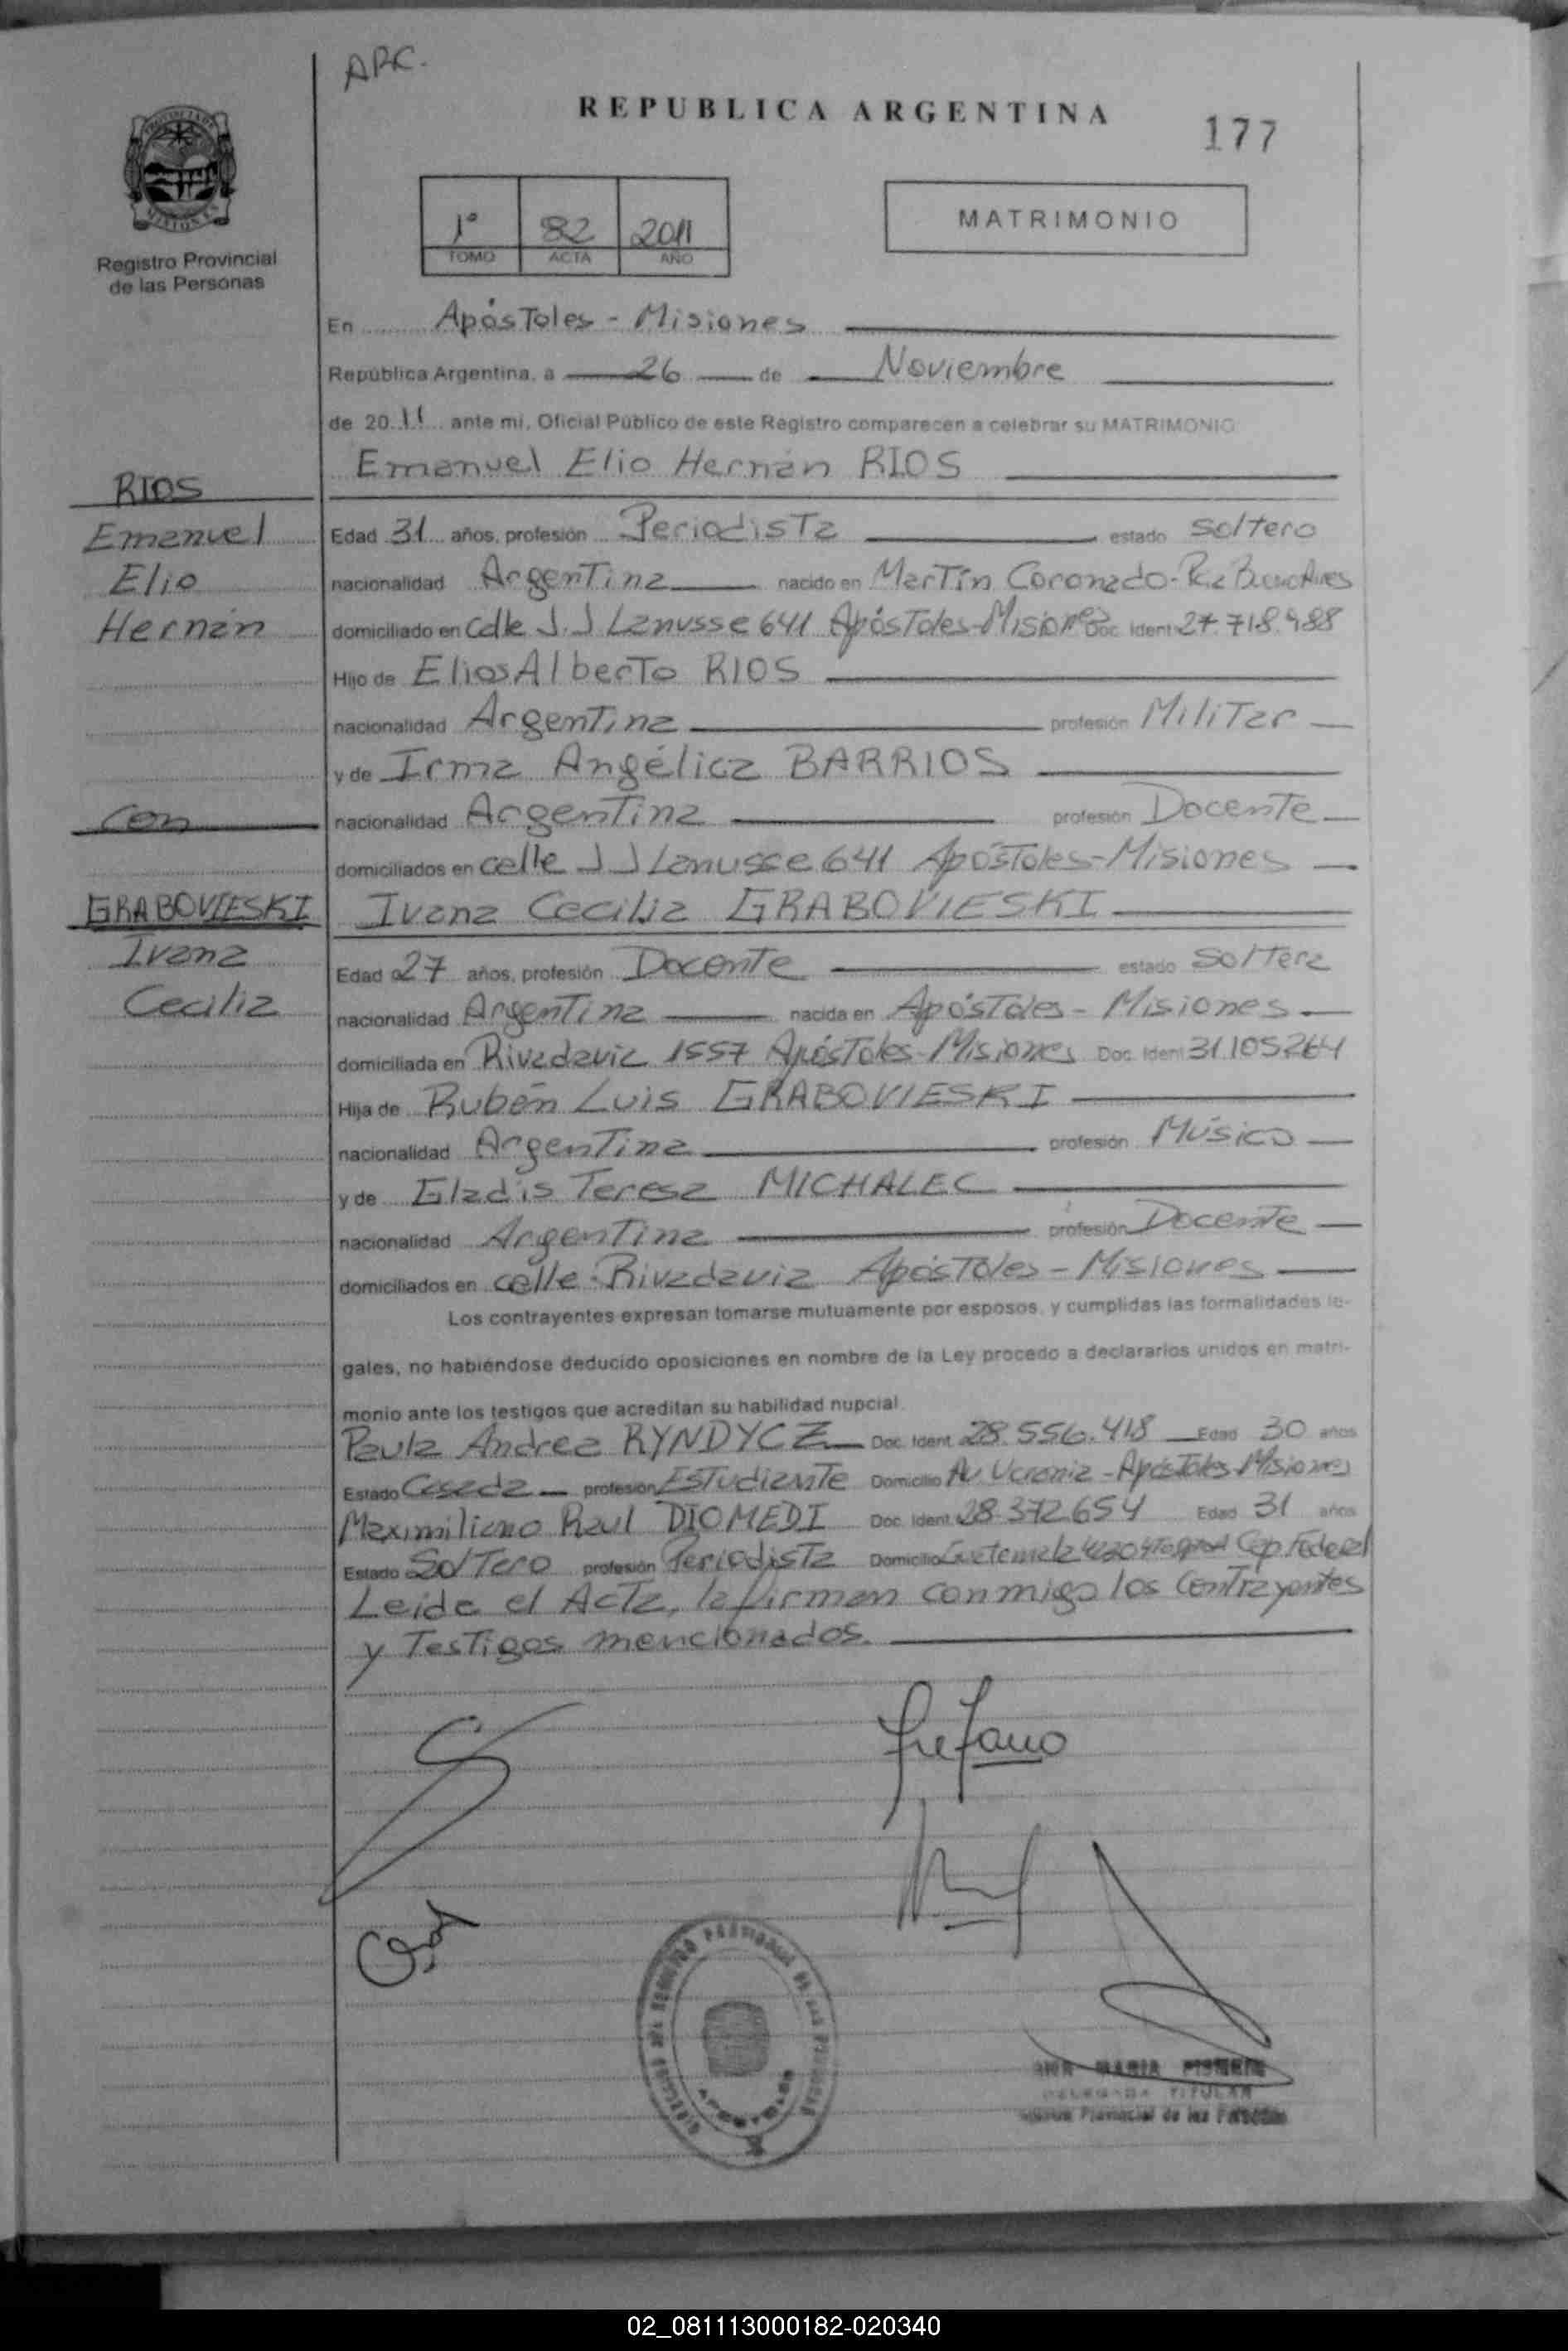 ARC.
REPUBLICA ARGENTINA
177
1° 82 2011
TOMO ACTA AÑO
MATRIMONIO
Registro Provincial
de las Personas
En Apóstoles - Misiones
República Argentina, a 26 de Noviembre
de 2011 ante mi, Oficial Público de este Registro comparecen a celebrar su MATRIMONIO
Emanuel Elio Hernán RIOS
RIOS
Emanuel
Elio
Hernán
Edad 31 años, profesión Periodista estado Soltero
nacionalidad Argentina nacido en Martín Coronado - Buenos Aires
domiciliado en Calle J.J Lanusse 641 Apóstoles-Misiones Doc. Ident 27.718.988
Hijo de Elios Alberto RIOS
nacionalidad Argentina profesión Militar
y de Irma Angélica BARRIOS
con
nacionalidad Argentina profesión Docente
domiciliados en calle J J Lanusse 641 Apóstoles-Misiones
GRABOVIESKI
Ivana
Cecilia
Ivana Cecilia GRABOVIESKI
Edad 27 años, profesión Docente estado Soltera
nacionalidad Argentina nacida en Apóstoles - Misiones
domiciliada en Rivadavia 1557 Apóstoles-Misiones Doc. Ident 31.105.264
Hija de Rubén Luis GRABOVIESKI
nacionalidad Argentina profesión Músico
y de Gladis Teresa MICHALEC
nacionalidad Argentina profesión Docente
domiciliados en calle Rivadavia Apóstoles - Misiones
Los contrayentes expresan tomarse mutuamente por esposos, y cumplidas las formalidades le-
gales, no habiéndose deducido oposiciones en nombre de la Ley procedo a declararlos unidos en matri-
monio ante los testigos que acreditan su habilidad nupcial.
Paula Andrea RYNDYCZ Doc. Ident. 28.556.418 Edad 30 años
Estado Casada profesión Estudiante Domicilio Av. Ucrania - Apóstoles Misiones
Maximiliano Raul DIOMEDI Doc. Ident. 28.372.654 Edad 31 años
Estado Soltero profesión Periodista Domicilio Guatemala Cap. Federal
Leida el Acta, la firman conmigo los Contrayentes
y Testigos mencionados.
APOSTOLES
ANA MARIA
DELEGADA TITULAR
Provincial de las Personas
02_081113000182-020340